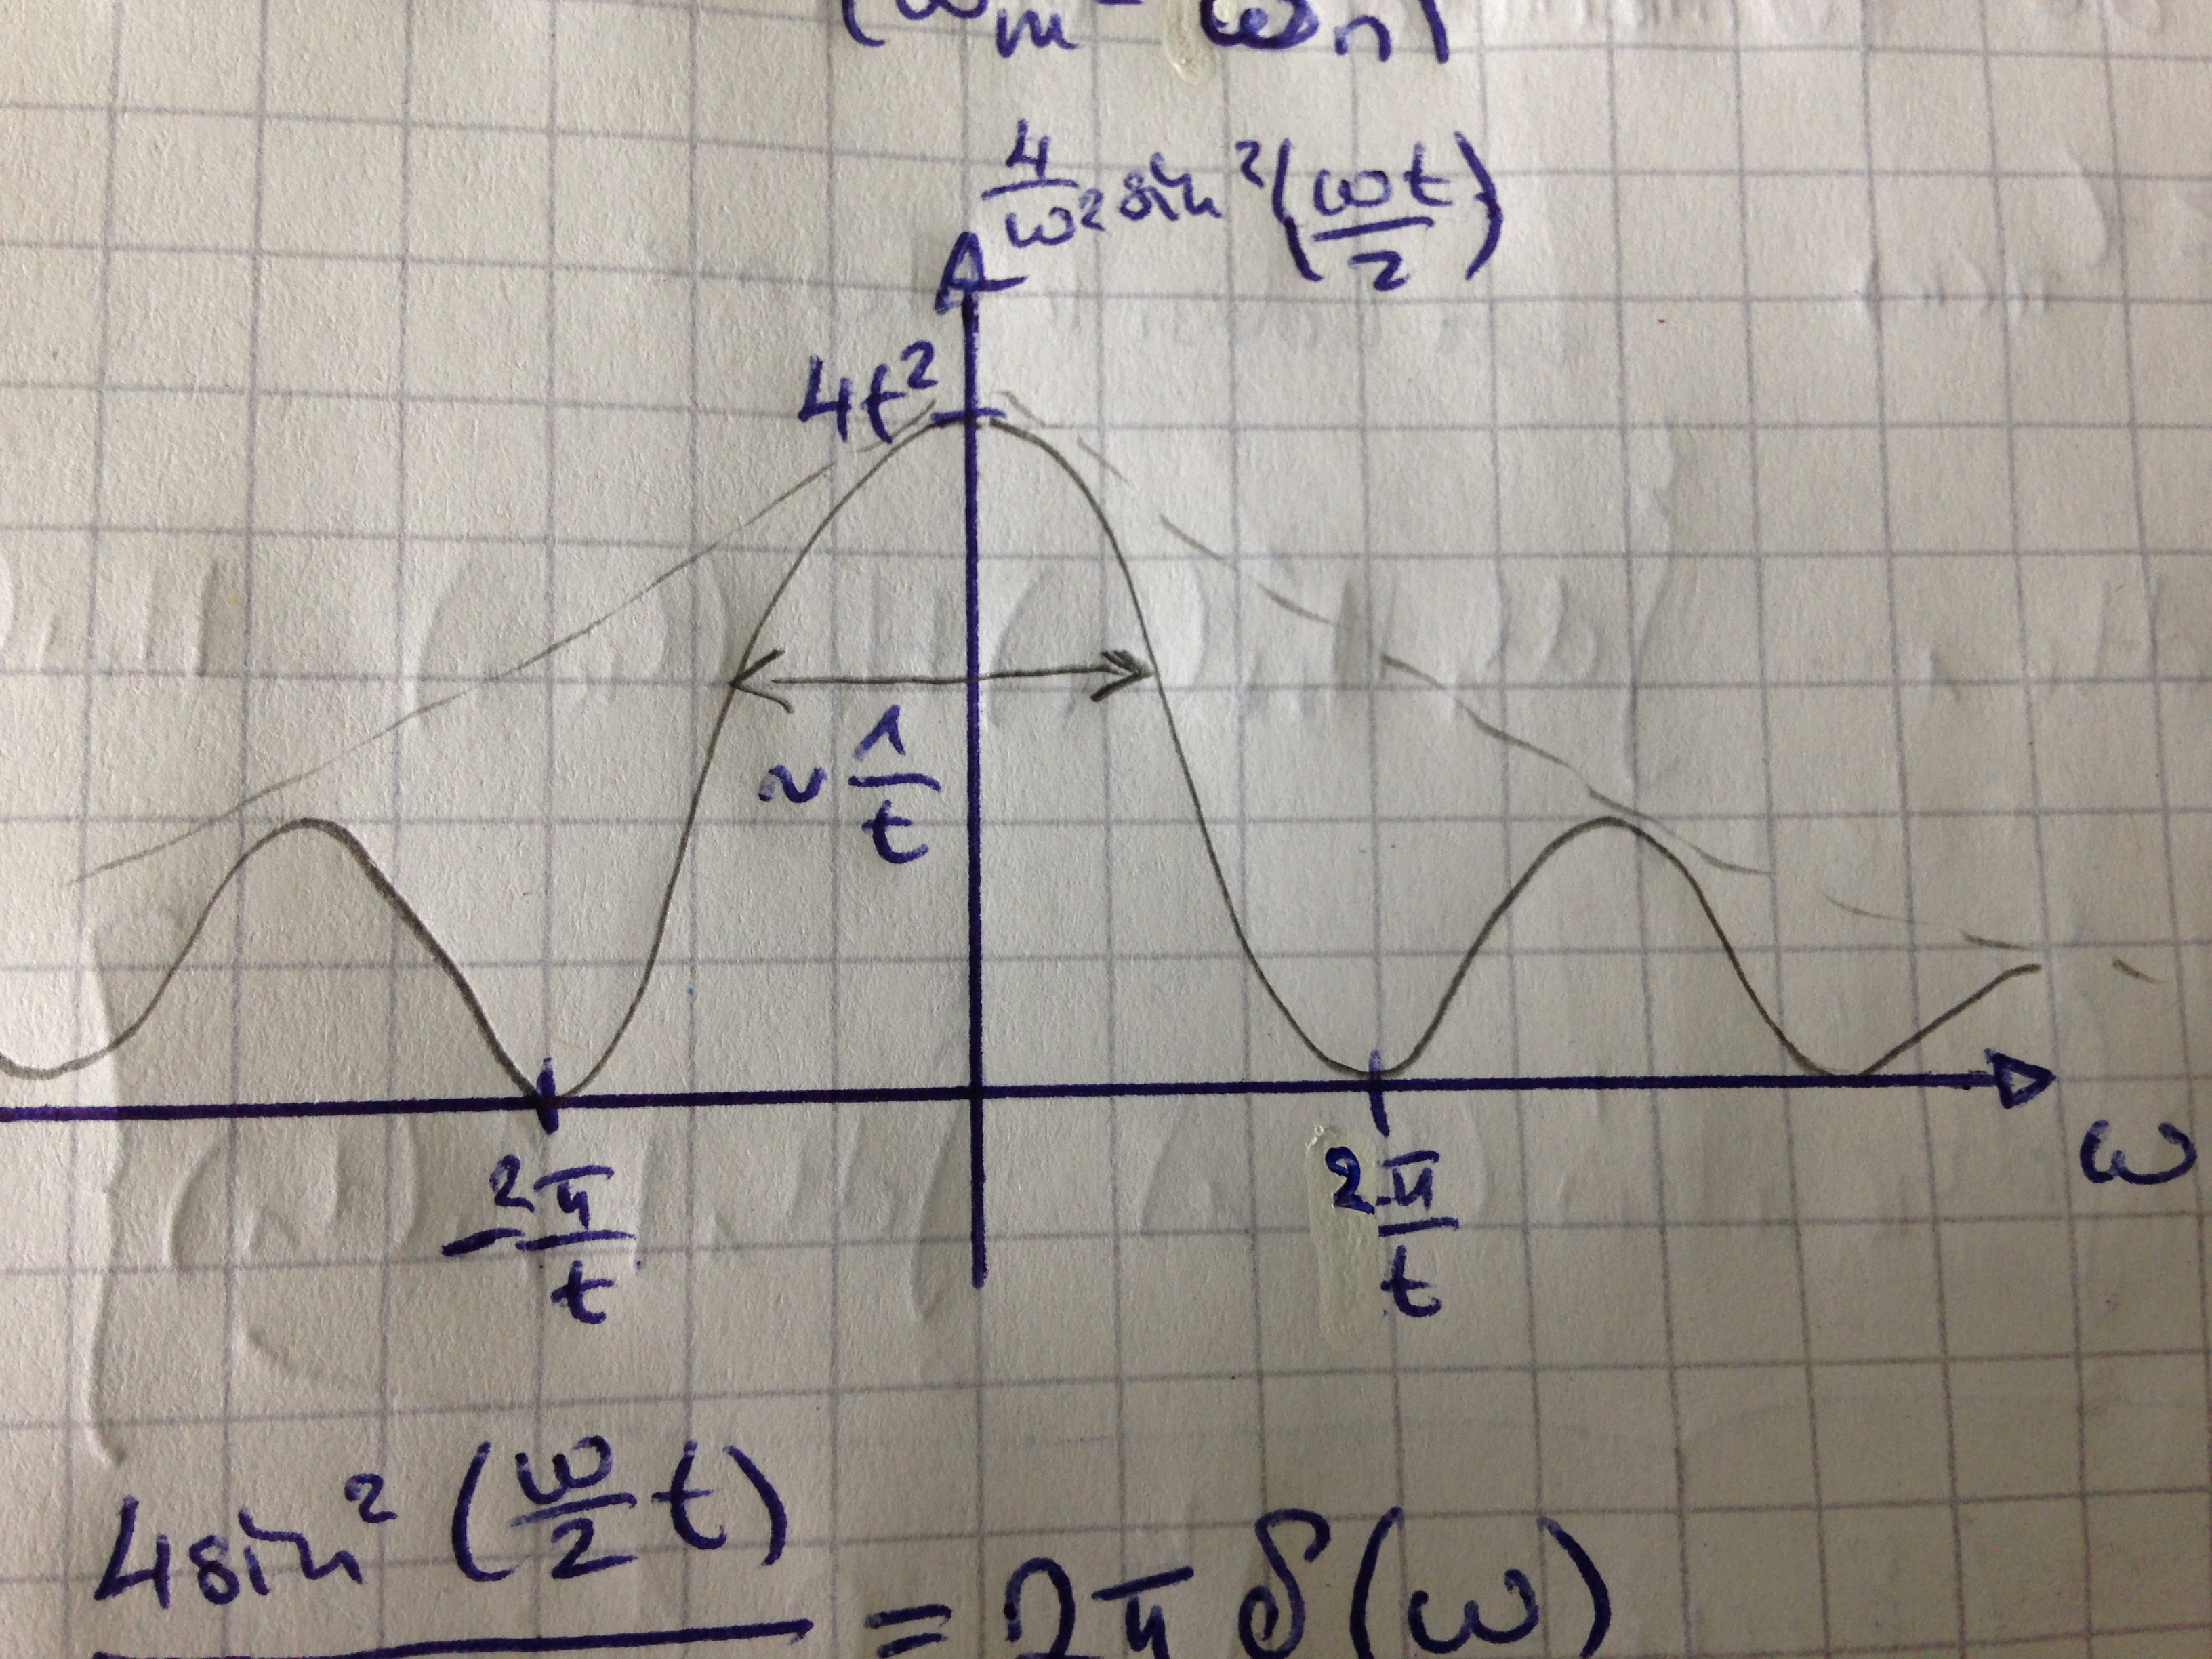 (ωm - ωn)
4/ω² sin²(ωt/2)
4t²
~ 1/t
-2π/t
2π/t
ω
4sin²(ω/2 t)
= 2π δ(ω)